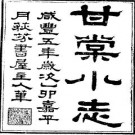 甘棠小志
咸豐五年歲次乙卯嘉平
月秋芬書屋主人